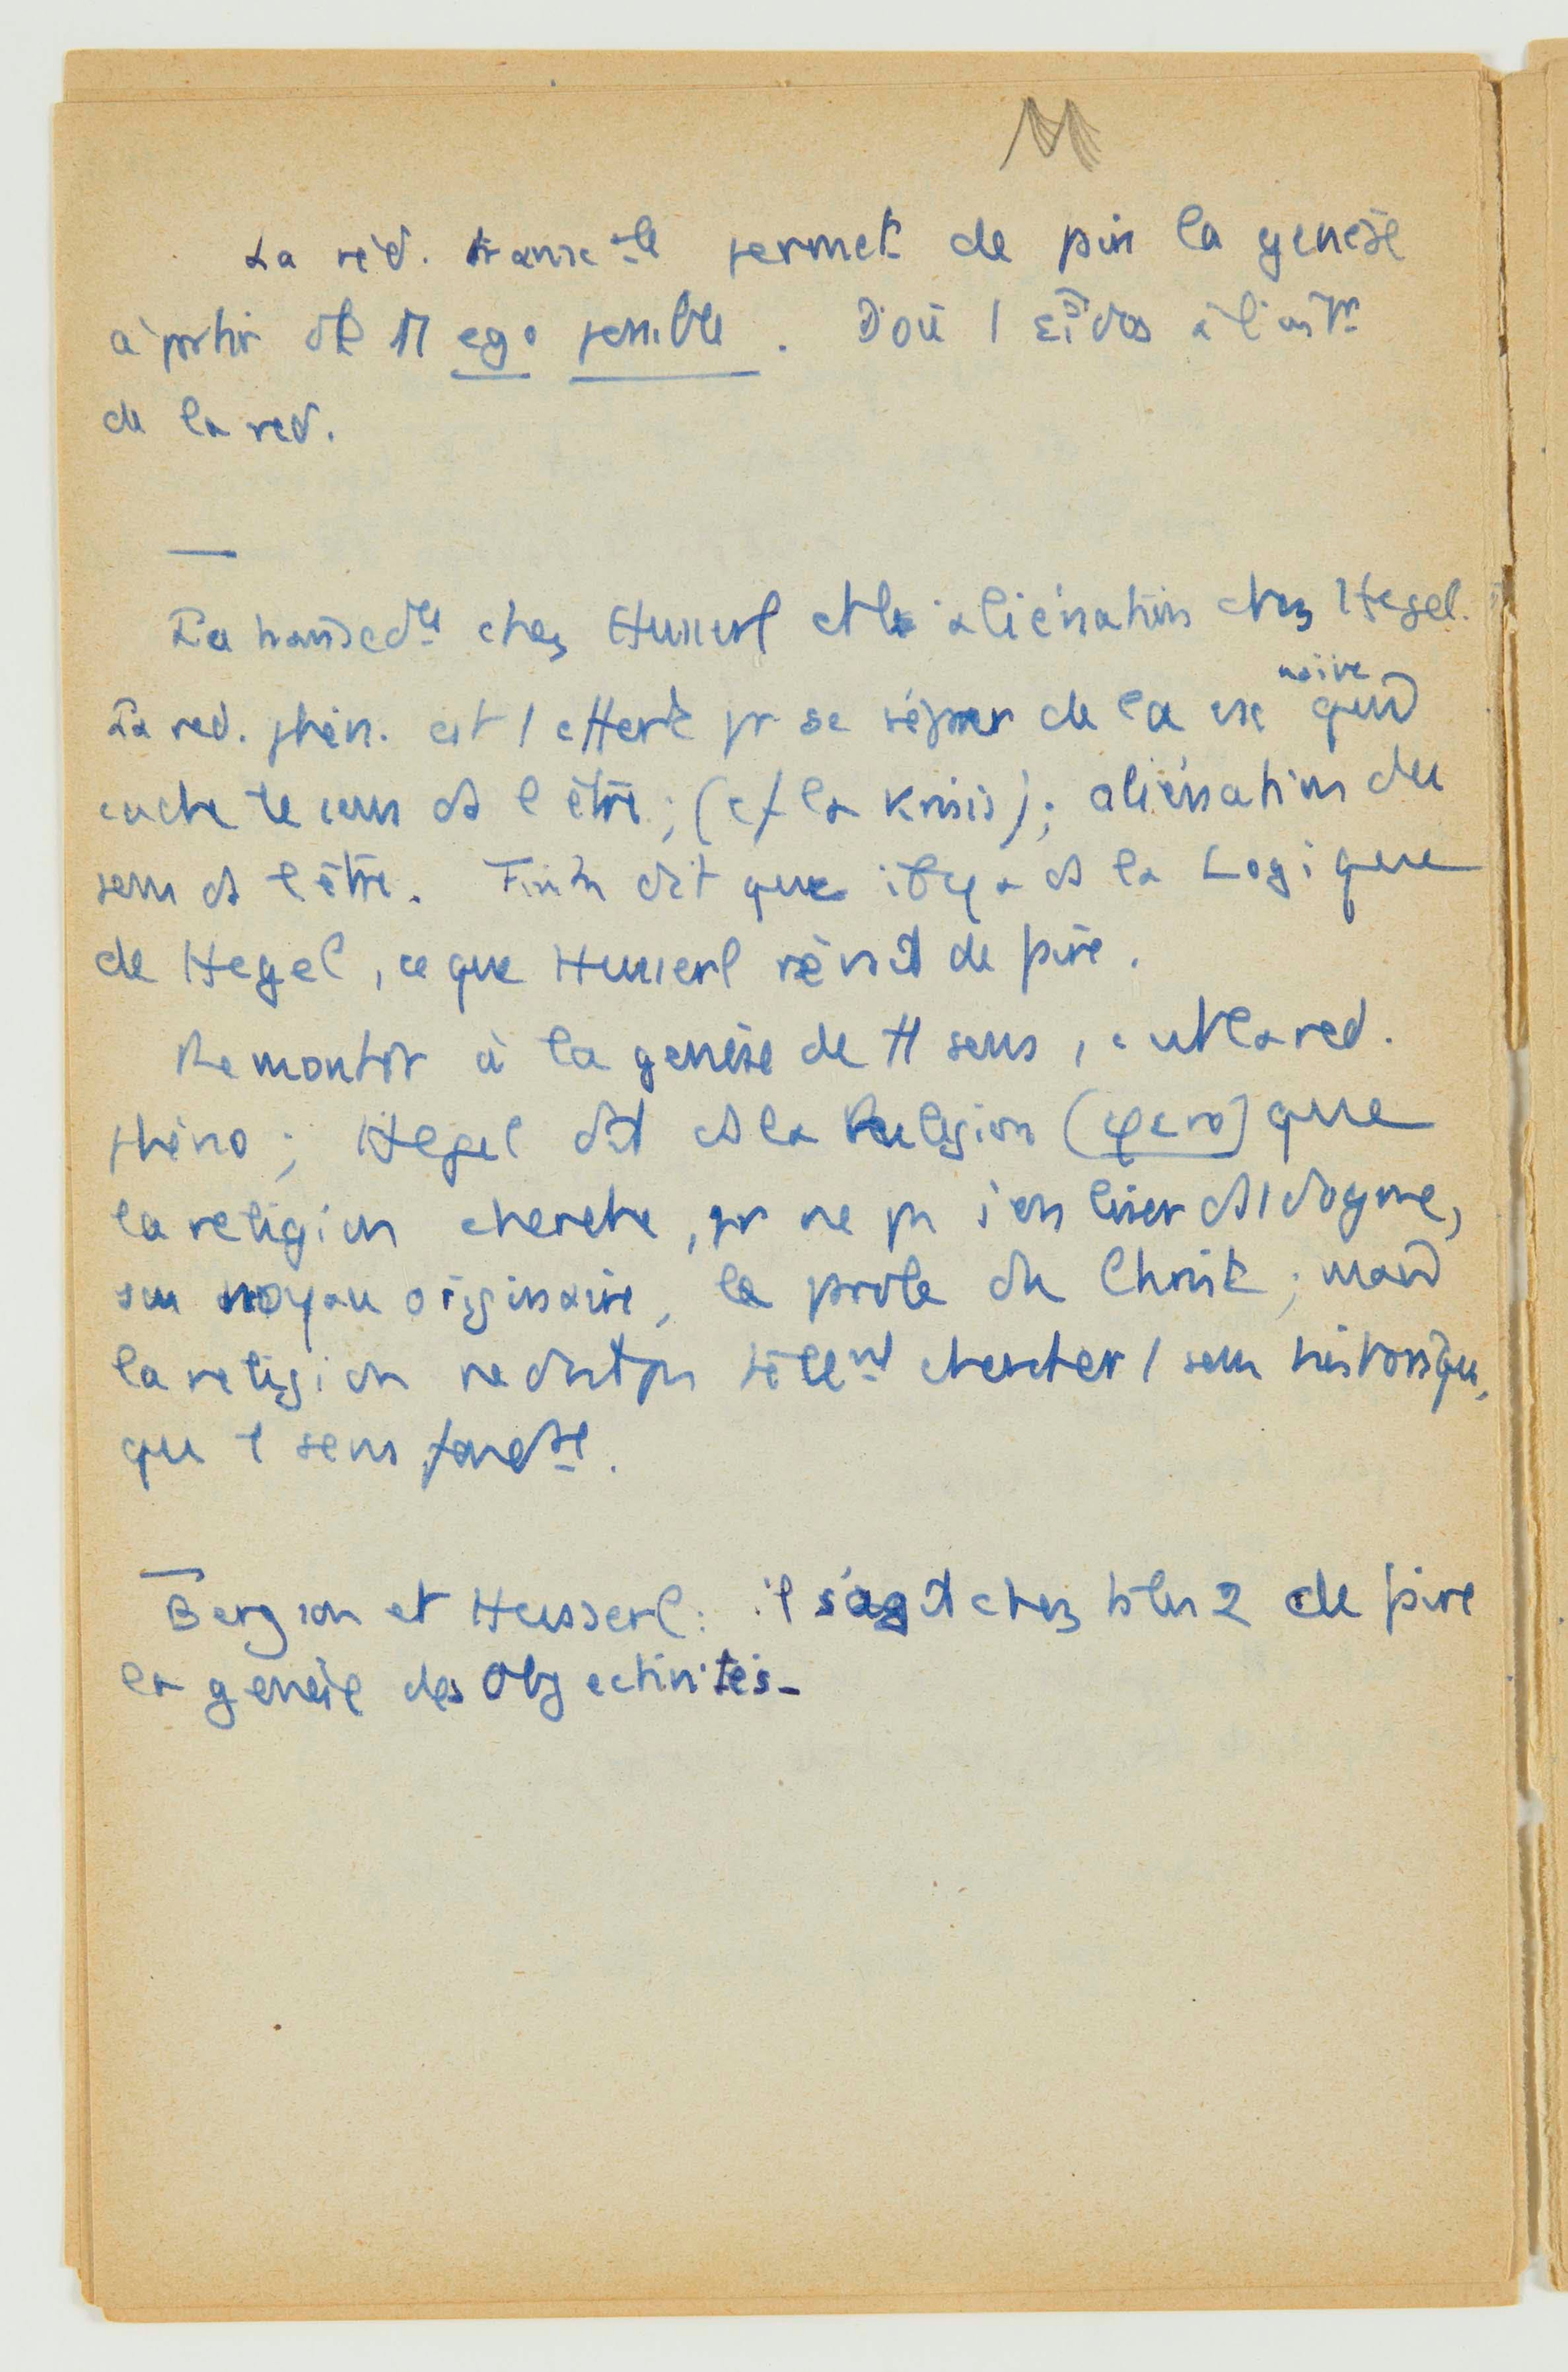 La réd. transc le permet de pir la genèse
à partir de tt ego possible. D'où l'εἶδος à l'int r
de la red.
La transcdle chez Husserl et la aliénation chez Hegel.
La red. phén. est l effort pr se séparer de la naïve qui
cache le sens de l être ; (cf la Krisis) ; aliénation du
sens de l être. Fink dit que il y a ds la Logique
de Hegel, ce que Husserl réussit de
Remonter à la genèse de tt sens, c est la red.
phéno ; Hegel dit ds la Religion que
la religion cherche, pr ne pas s'enliser ds l dogme,
son noyau originaire, la parole du Christ ; mais
la religion ne doit pas tellemt chercher l sens historique,
que l sens
Bergson et Husserl : il s'agit chez ts les 2 de
la genèse des Objectivités -